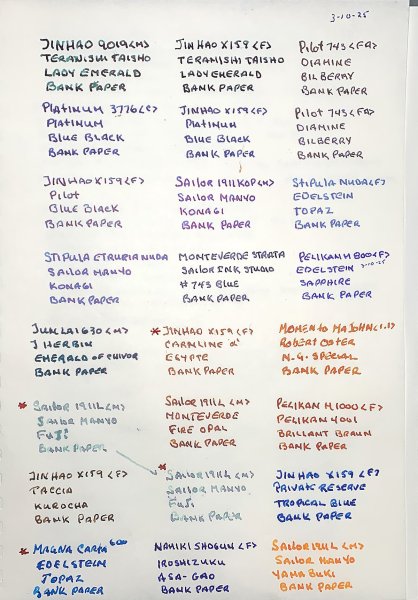 3-10-25
JINHAO 9019 <M>
TERANISHI TAISHO
LADY EMERALD
BANK PAPER
JINHAO X159 <F>
TERANISHI TAISHO
LADY EMERALD
BANK PAPER
Pilot 743 <FA>
DIAMINE
BILBERRY
BANK PAPER
PLATINUM 3776 <C>
PLATINUM
BLUE BLACK
BANK PAPER
JINHAO X159 <F>
PLATINUM
BLUE BLACK
BANK PAPER
Pilot 743 <FA>
DIAMINE
BILBERRY
BANK PAPER
JINHAO X159 <F>
Pilot
BLUE BLACK
BANK PAPER
SAILOR 1911 KOP <M>
SAILOR MANYO
KONAGI
BANK PAPER
STIPULA NUDA <F>
EDELSTEIN
TOPAZ
BANK PAPER
STIPULA ETRURIA NUDA
SAILOR MANYO
KONAGI
BANK PAPER
MONTEVERDE STRATA
SAILOR INK STUDIO
# 743 BLUE
BANK PAPER
PELIKAN M800 <F>
EDELSTEIN 3-10-25
SAPPHIRE
BANK PAPER
JUNLAI 630 <M>
J HERBIN
EMERALD OF CHIVOR
BANK PAPER
* JINHAO X159 <F>
EGYPTE
BANK PAPER
MOMENTO MAJOHN <1.1>
ROBERT OSTER
N.G. SPECIAL
BANK PAPER
* SAILOR 1911L <M>
SAILOR MANYO
FUJI
BANK PAPER
SAILOR 1911L <M>
MONTEVERDE
FIRE OPAL
BANK PAPER
PELIKAN M1000 <F>
PELIKAN 4001
BRILLANT BRAUN
BANK PAPER
JINHAO X159 <F>
TACCIA
KUROCHA
BANK PAPER
* SAILOR 1911L <M>
SAILOR MANYO
FUJI
BANK PAPER
JINHAO X159 <F>
PRIVATE RESERVE
TROPICAL BLUE
BANK PAPER
* MAGNA CARTA 600
EDELSTEIN
TOPAZ
BANK PAPER
NAMIKI SHOGUN <F>
IROSHIZUKU
ASA-GAO
BANK PAPER
SAILOR 1911L <M>
SAILOR MANYO
YAMABUKI
BANK PAPER